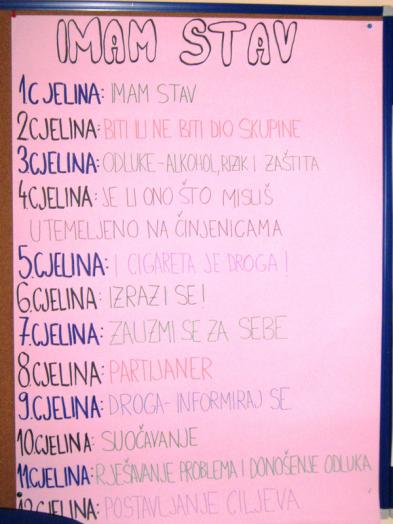 IMAM STAV
1.CJELINA: IMAM STAV
2CJELINA: BITI ILI NE BITI DIO SKUPINE
3.CJELINA: ODLUKE-ALKOHOL, RIZIK I ZAŠTITA
4.CJELINA: JE LI ONO ŠTO MISLIŠ
UTEMELJENO NA ČINJENICAMA
5.CJELINA: I CIGARETA JE DROGA!
6.CJELINA: IZRAZI SE!
7.CJELINA: ZAUZMI SE ZA SEBE
8.CJELINA: PARTIJANER
9.CJELINA: DROGA-INFORMIRAJ SE
10.CJELINA: SUOČAVANJE
11.CJELINA: RJEŠAVANJE PROBLEMA I DONOŠENJE ODLUKA
12 CJELINA: POSTAVLJANJE CILJEVA